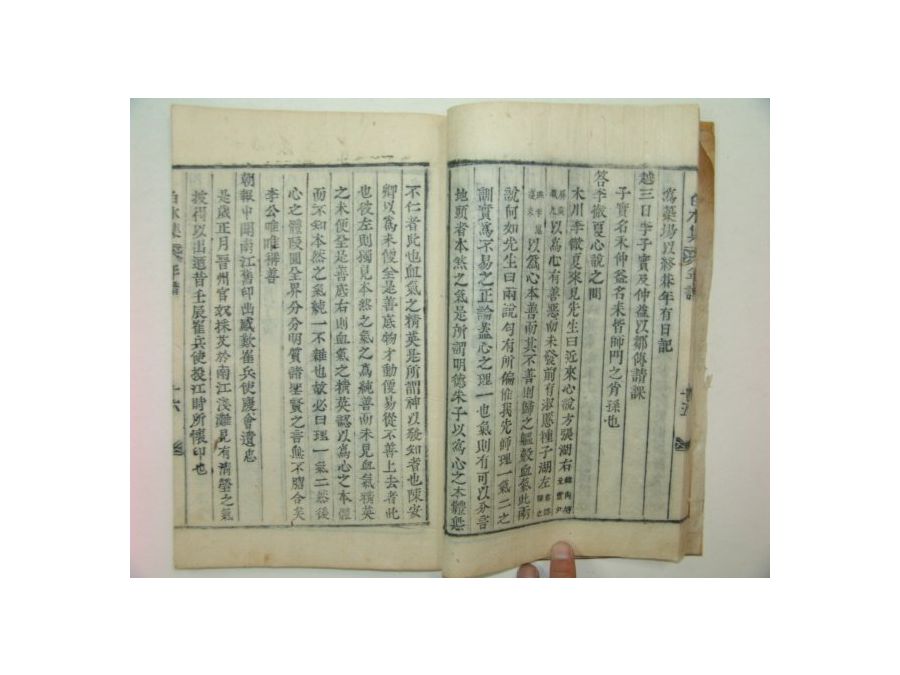 爲築場以終朞年有日記
越三日李子實及仲益以鄒傳請課
子實名未仲益名未皆師門之肖孫也
答李徵夏心說之問
木川李徵夏來見先生曰近來心說方張湖右
以爲心有善惡而未發前有淑慝種子湖左
以爲心本善而其不善則歸之軀殼血氣此兩
說何如先生曰兩說勻有所偏惟我先師理一氣二之
訓實爲不易之正論蓋心之理一也氣則有可以分言
地頭者本然之氣是所謂明德朱子以爲心之本體無
不仁者此也血氣之精英是所謂神以發知者也陳安
卿以爲未便全是善底物才動便易從不善上去者此
也彼左則獨見本然之氣之爲純善而未見血氣精英
之未便全是善底右則血氣之精英認以爲心之本體
而不知本然之氣純一不雜也故必曰理一氣二然後
心之體段圓全界分分明質諸聖賢之言無不脗合矣
李公唯唯稱善
朝報中聞南江舊印出感歎崔兵使慶會遺忠
是歲正月晉州官奴採艾於南江淺灘見有淸瑩之氣
披得以出迺昔壬辰崔兵使投江時所懷印也
白水集 年譜 十六